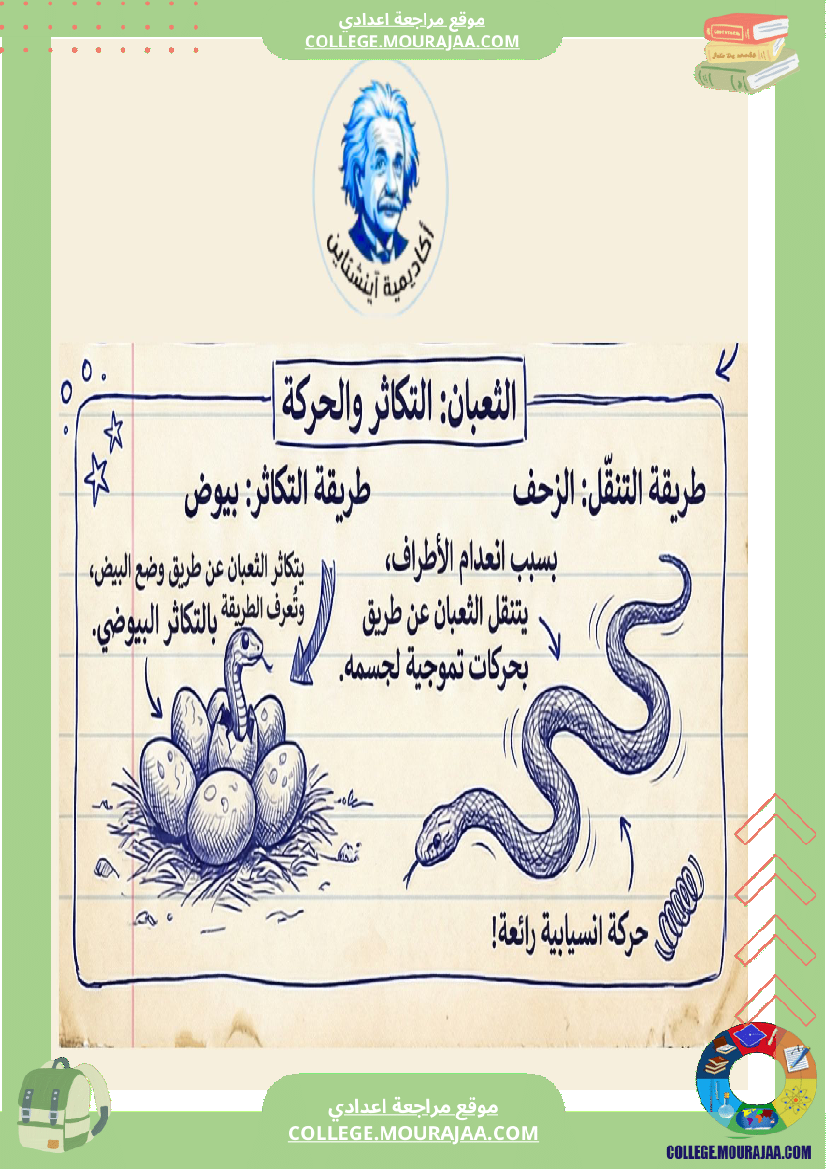 موقع مراجعة اعدادي
COLLEGE.MOURAJAA.COM
أكاديمية آينشتاين
الثعبان: التكاثر والحركة
طريقة التنقّل: الزحف
بسبب انعدام الأطراف،
يتنقل الثعبان عن طريق
بحركات تموجية لجسمه.
حركة انسيابية رائعة!
طريقة التكاثر: بيوض
يتكاثر الثعبان عن طريق وضع البيض،
وتُعرف الطريقة بالتكاثر البيوضي.
موقع مراجعة اعدادي
COLLEGE.MOURAJAA.COM
COLLEGE.MOURAJAA.COM